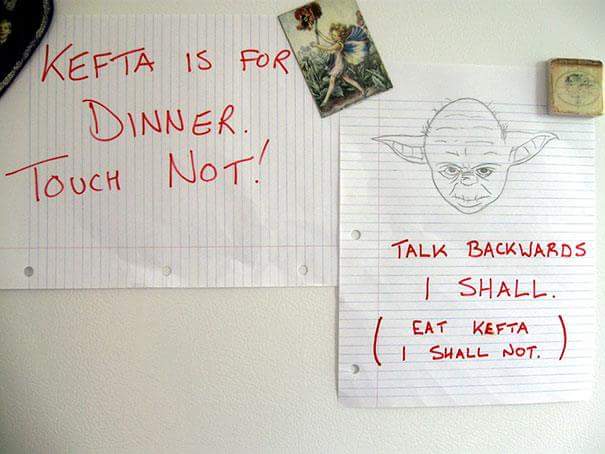 KEFTA IS FOR
DINNER.
TOUCH NOT!
TALK BACKWARDS
I SHALL.
( EAT KEFTA
I SHALL NOT. )